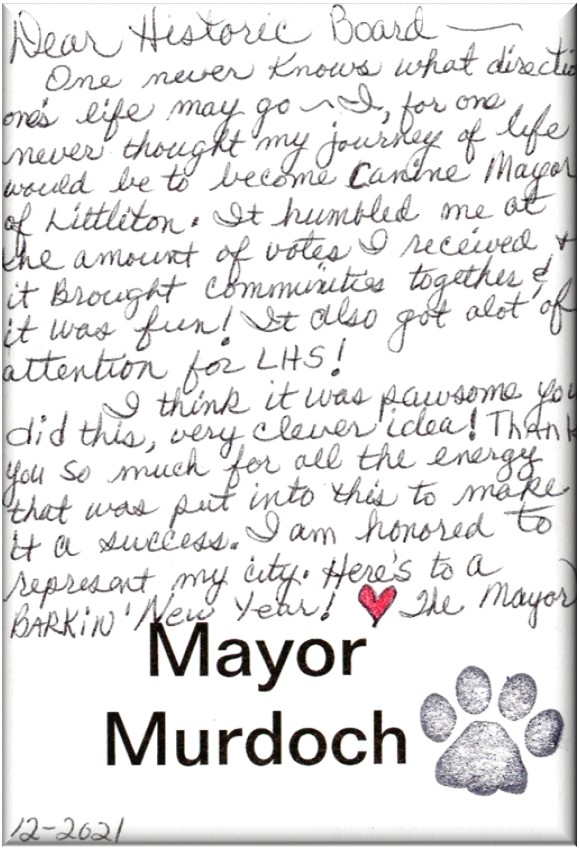 Dear Historic Board —
One never Knows what directio
one's life may go ~ I, for one
never thought my journey of life
would be to become Canine Mayor
of Littliton. It humbled me at
the amount of votes I received &
it Brought communities together &
it was fun! It also got alot of
attention for LHS!
I think it was pawsome you
did this, very clever idea! Thank
you so much for all the energy
that was put into this to make
it a success. I am honored to
represent my city. Here's to a
BARKiN' New Year! ♥ The Mayor
Mayor
Murdoch
12-2021